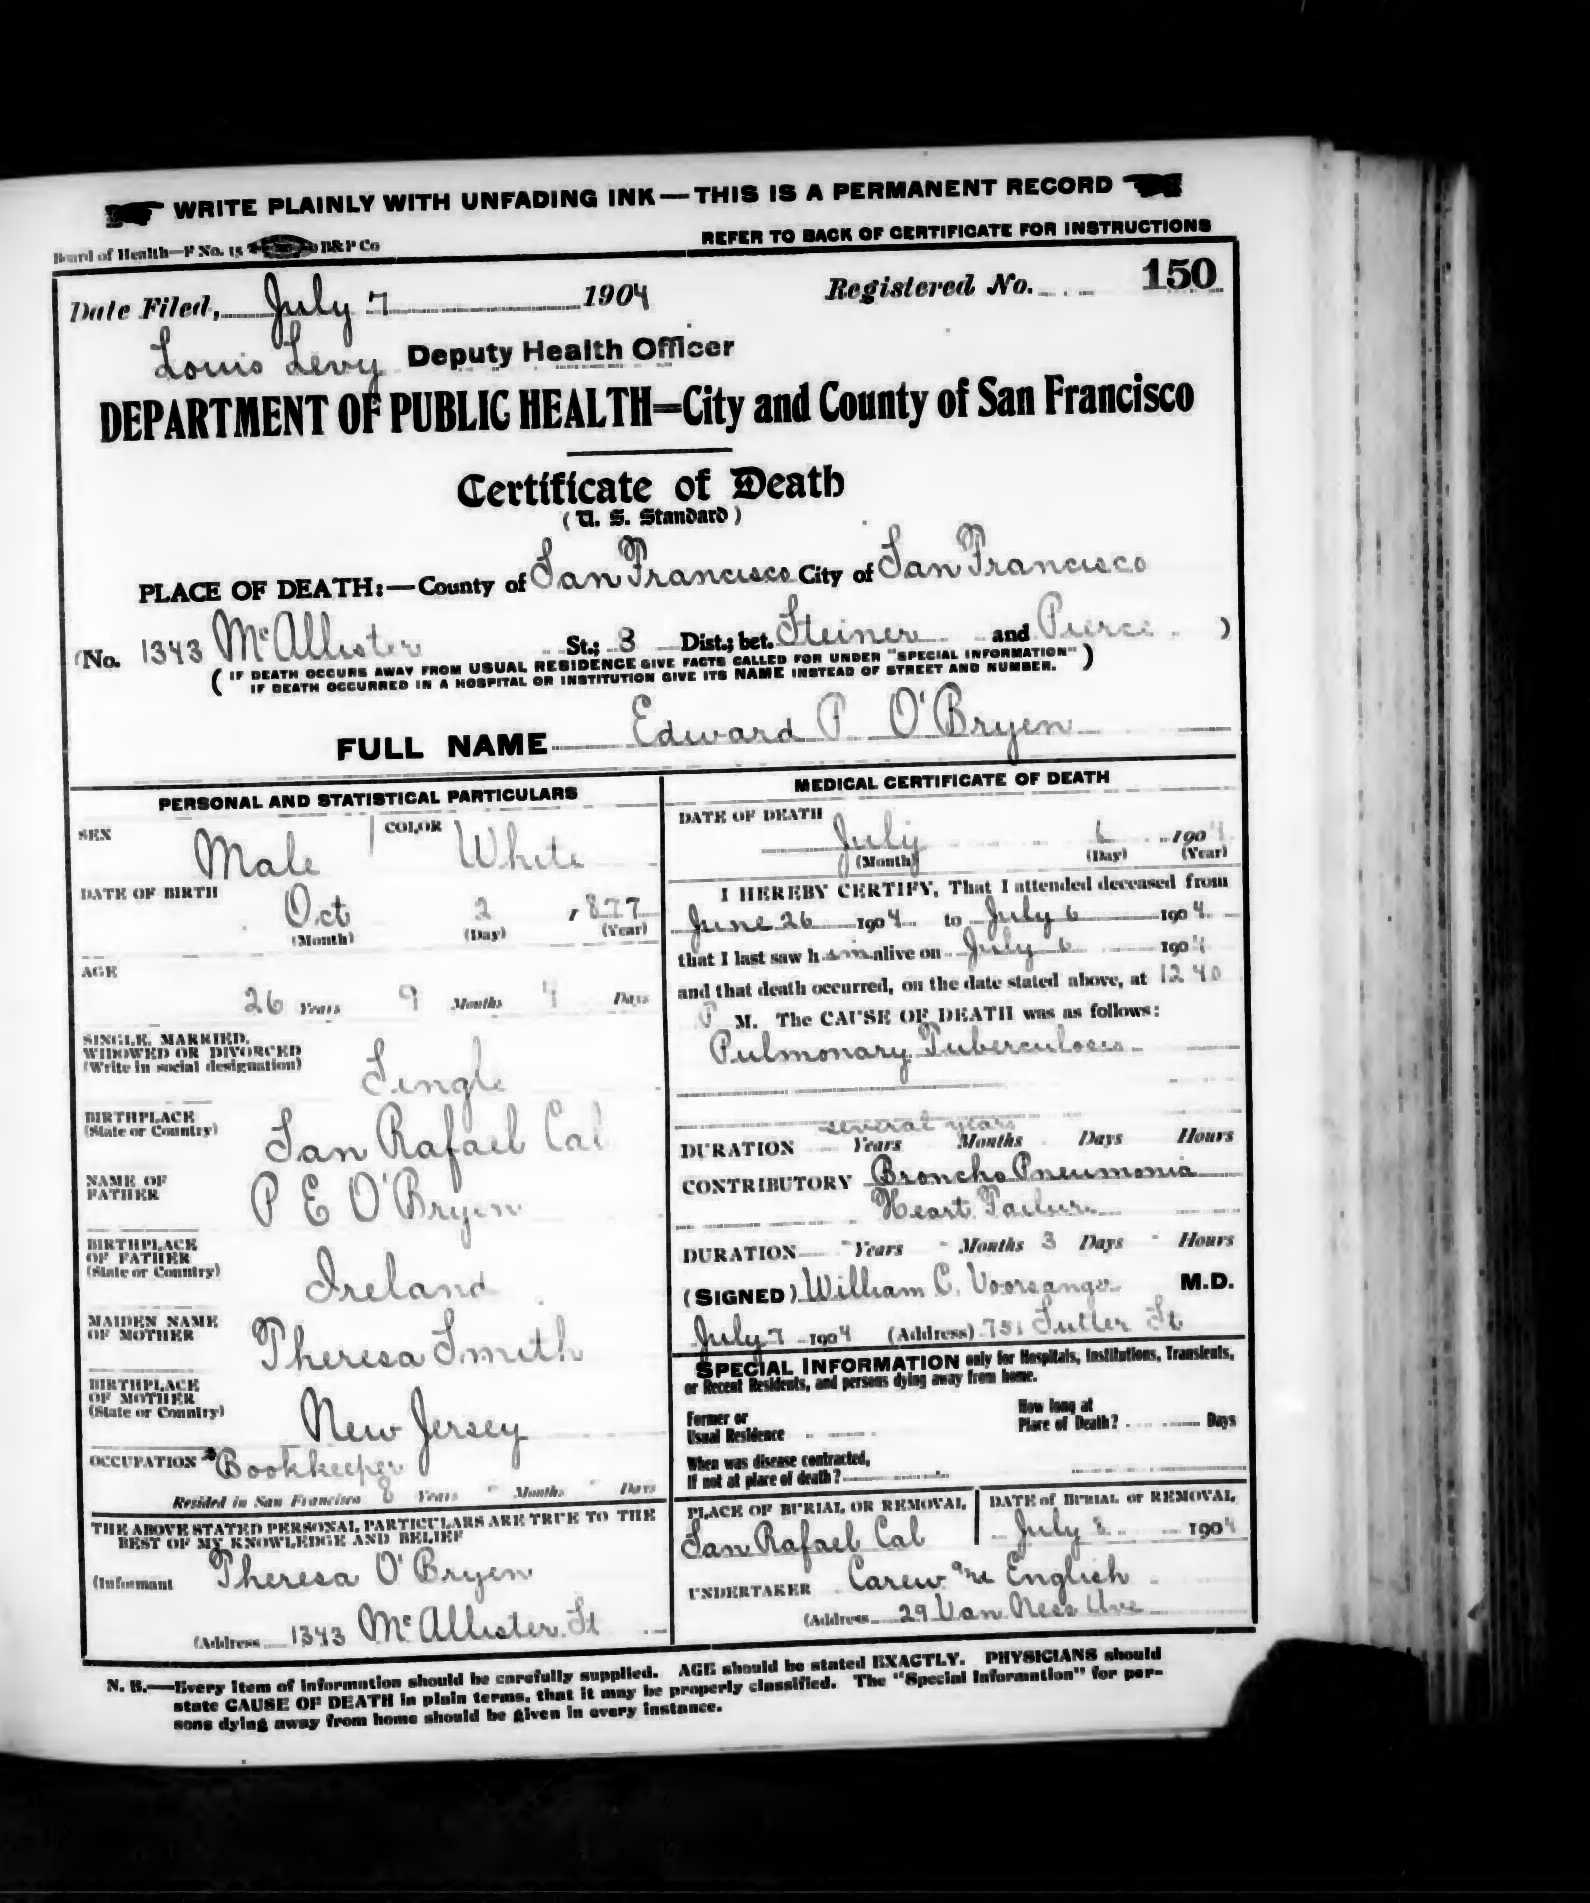 WRITE PLAINLY WITH UNFADING INK—THIS IS A PERMANENT RECORD
Board of Health—F No. 15 B&P Co
REFER TO BACK OF CERTIFICATE FOR INSTRUCTIONS
Date Filed, July 7 1904 Registered No. 150
Louis Levy Deputy Health Officer
DEPARTMENT OF PUBLIC HEALTH=City and County of San Francisco
Certificate of Death
(U. S. Standard)
PLACE OF DEATH:—County of San Francisco City of San Francisco
(No. 1343 McAllister St.; 8 Dist.; bet. Steiner and Pierce )
( IF DEATH OCCURS AWAY FROM USUAL RESIDENCE GIVE FACTS CALLED FOR UNDER "SPECIAL INFORMATION" )
IF DEATH OCCURRED IN A HOSPITAL OR INSTITUTION GIVE ITS NAME INSTEAD OF STREET AND NUMBER.
FULL NAME Edward P O'Bryen
PERSONAL AND STATISTICAL PARTICULARS
SEX Male COLOR White
DATE OF BIRTH
Oct 2 , 877
(Month) (Day) (Year)
AGE
26 Years 9 Months 4 Days
SINGLE, MARRIED,
WIDOWED OR DIVORCED
(Write in social designation) Single
BIRTHPLACE
(State or Country) San Rafael Cal
NAME OF
FATHER P E O'Bryen
BIRTHPLACE
OF FATHER
(State or Country) Ireland
MAIDEN NAME
OF MOTHER Theresa Smith
BIRTHPLACE
OF MOTHER
(State or Country) New Jersey
OCCUPATION Bookkeeper
Resided in San Francisco 8 Years - Months - Days
THE ABOVE STATED PERSONAL PARTICULARS ARE TRUE TO THE
BEST OF MY KNOWLEDGE AND BELIEF
(Informant Theresa O'Bryen
(Address 1343 McAllister St
MEDICAL CERTIFICATE OF DEATH
DATE OF DEATH
July 6 1904
(Month) (Day) (Year)
I HEREBY CERTIFY, That I attended deceased from
June 26 1904 to July 6 1904
that I last saw him alive on July 6 1904
and that death occurred, on the date stated above, at 12 40
P M. The CAUSE OF DEATH was as follows:
Pulmonary Tuberculosis
several years
DURATION Years Months Days Hours
CONTRIBUTORY Broncho Pneumonia
Heart Failure
DURATION - Years - Months 3 Days - Hours
(SIGNED) William C. Voorsanger M.D.
July 7 1904 (Address) 751 Sutter St
SPECIAL INFORMATION only for Hospitals, Institutions, Transients,
or Recent Residents, and persons dying away from home.
Former or
Usual Residence
How long at
Place of Death? Days
When was disease contracted,
If not at place of death?
PLACE OF BURIAL OR REMOVAL
San Rafael Cal
DATE of BURIAL or REMOVAL
July 8 1904
UNDERTAKER Carew and English
(Address 29 Van Ness Ave
N. B.—Every item of information should be carefully supplied. AGE should be stated EXACTLY. PHYSICIANS should
state CAUSE OF DEATH in plain terms, that it may be properly classified. The "Special Information" for per-
sons dying away from home should be given in every instance.